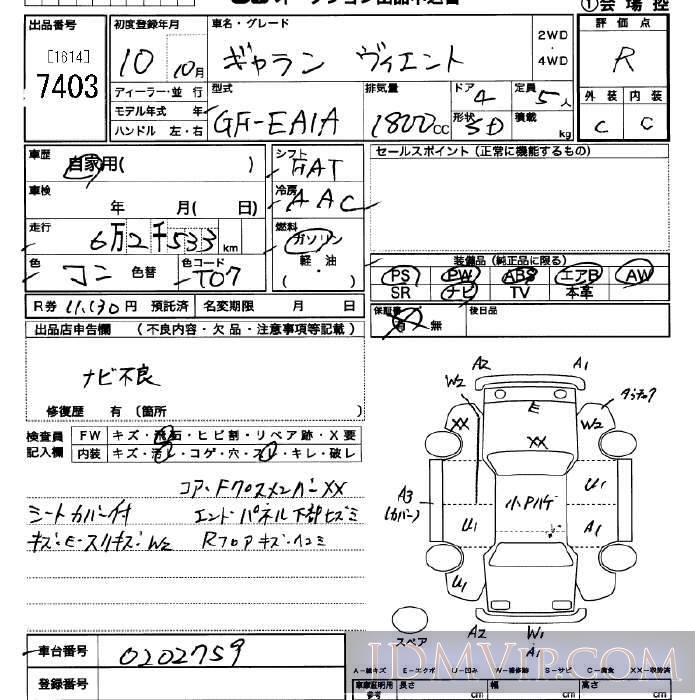 出品番号
[1614]
7403
初度登録年月
10 10月
車名・グレード
ギャラン ヴィエント
2WD
・
4WD
評価点
R
外装 内装
C C
ディーラー・並行
モデル年式 年
ハンドル 左・右
型式
GF-EA1A
排気量
1800cc
ドア
4
形状
SD
定員
5人
積載
kg
車歴
自家用( )
シフト
FAT
セールスポイント（正常に機能するもの）
車検
年 月( 日)
冷房
AAC
走行
6万2千533km
燃料
ガソリン
軽・油
( ・ )
色
コン 色替
色コード
T07
装備品（純正品に限る）
PS PW ABS エアB AW
SR ナビ TV 本革
R券 11,130円 預託済 名変期限 月 日
保証書
有・無
後日品
出品店申告欄 （不良内容・欠品・注意事項等記載）
ナビ不良
修復歴 有〔箇所 〕
検査員
記入欄
FW キズ・飛石・ヒビ割・リペア跡・X要
内装 キズ・汚レ・コゲ・穴・スレ・キレ・破レ
コア・FクロスメンバーXX
シートカバー付 エンドパネル下部ヒズミ
キズ・E・スリキズ・W2 Rフロアキズ・ヘコミ
A2 A1
W2
タッチアップ
E
XX W2
XX
U1
A3
(カバー)
小Pハゲ
U1 A1
U1
スペア
A2 W1
A1
車台番号
0202759
登録番号
A－線キズ E－エクボ U－凹み W－補修跡 S－サビ C－腐食 XX－交換済
車庫証明用
参考
長さ cm 幅 cm 高さ cm
JDMVIP.COM